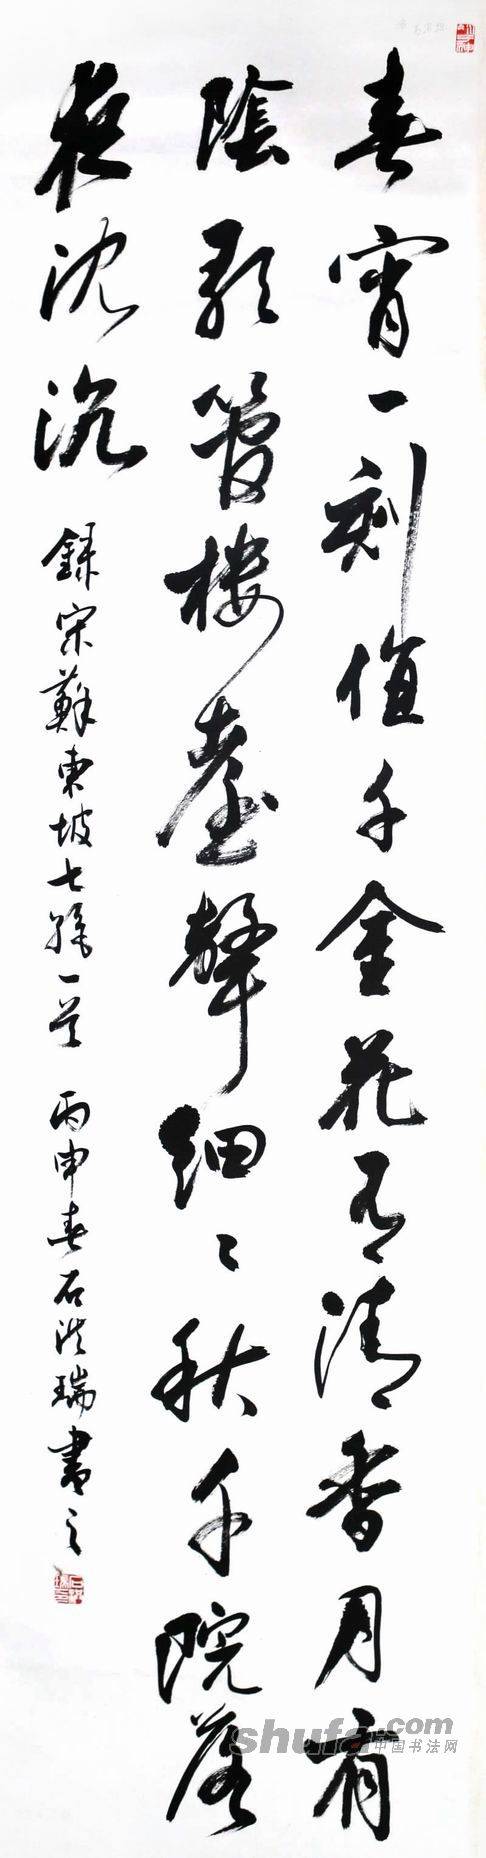 春宵一刻值千金花有清香月有
陰歌管樓臺聲細〻秋千院落
夜沈沉
錄宋蘇東坡七絕一首 丙申春石洪瑞書之
shufa.com
中国书法网